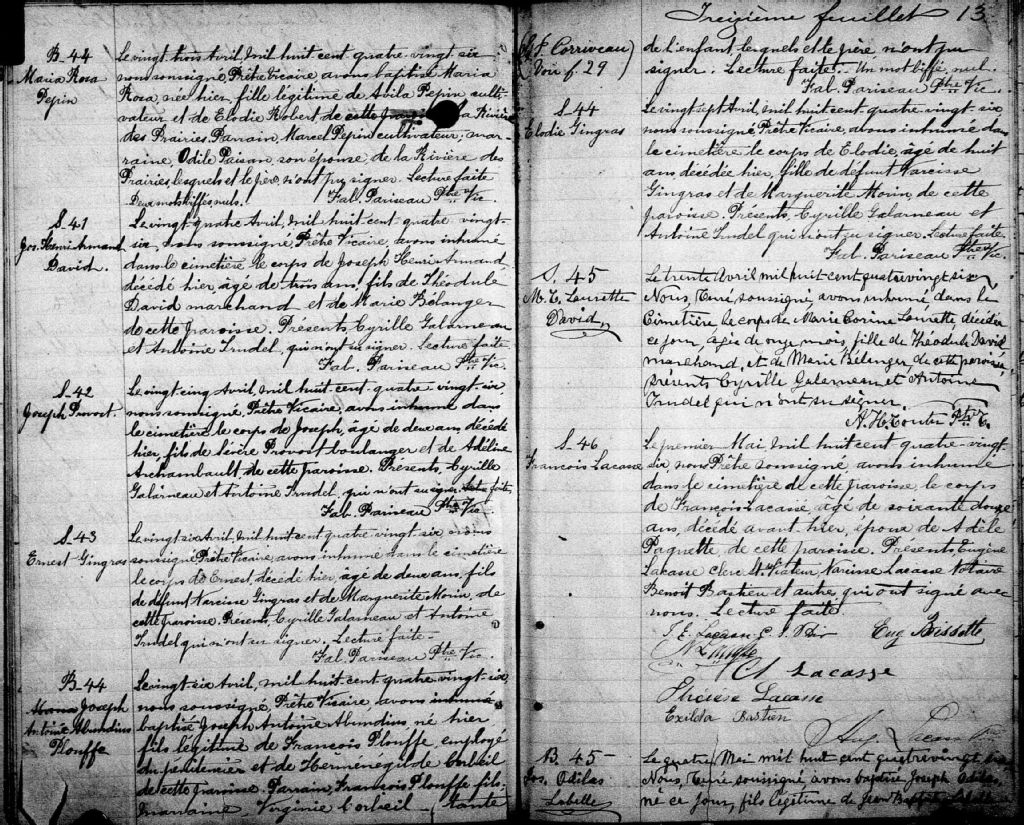 B_44
Maria Rosa
Pepin
Le vingt trois Avril, mil huit cent quatre-vingt six
nous soussigné Prêtre Vicaire, avons baptisé Maria
Rosa, née hier, fille légitime de Pepin culti-
vateur et de Elodie Robert de cette la Rivière
des Prairies. Parrain, Marcel Pepin cultivateur, mar-
raine, Odile son épouse, de la Rivière des
Prairies lesquels et le père n'ont pu signer. Lecture faite
Deux mots biffés nuls. Fab. Pariseau Ptre Vic.
S_41
Jos. Henri Armand
David.
Le vingt-quatre Avril, mil huit-cent quatre vingt-
six, nous soussigné, Prêtre Vicaire, avons inhumé
dans le cimetière le corps de Joseph Henri Armand,
décédé hier, âgé de trois ans, fils de Théodule
David marchand et de Marie Bélanger
de cette paroisse. Présents, Cyrille Galarneau
et Antoine Trudel, qui n'ont su signer. Lecture faite.
Fab. Pariseau Ptre Vic.
S_42
Joseph Provost.
Le vingt-cinq Avril, mil huit-cent quatre-vingt-six
nous soussigné, Prêtre Vicaire, avons inhumé dans
le cimetière, le corps de Joseph, âgé de deux ans, décédé
hier, fils de Sévère Provost boulanger et de Adéline
Archambault de cette paroisse. Présents, Cyrille
Galarneau et Antoine Trudel, qui n'ont su signer. Lecture faite,
Fab. Pariseau Ptre Vic.
S_43
Ernest Gingras
Le vingt six Avril, mil huit cent quatre-vingt six nous
soussigné Prêtre Vicaire, avons inhumé dans le cimetière
le corps de Ernest, décédé hier, âgé de deux ans, fils
de défunt Narcisse Gingras et de Marguerite Morin, de
cette paroisse. Présents, Cyrille Galarneau et Antoine
Trudel qui n'ont su signer. Lecture faite.
Fab. Pariseau Ptre Vic.
B_44
Joseph
Antoine Abundius
Plouffe
Le vingt-six Avril, mil huit cent quatre vingt-six,
nous soussigné, Prêtre Vicaire, avons inhumé
baptisé Joseph Antoine Abundius né hier,
fils légitime de François Plouffe, employé
du pénitencier et de Herménégilde Corbeil
de cette paroisse. Parrain, François Plouffe fils,
marraine, Virginie Corbeil tante
Treizième feuillet 13
Corriveau
Voir f. 29
de l'enfant, lesquels et le père n'ont pu
signer. Lecture faite. Un mot biffé nul.
Fab. Pariseau Ptre Vic.
S_44
Elodie Gingras
Le vingt sept Avril, mil huit-cent-quatre-vingt-six
nous soussigné, Prêtre Vicaire, avons inhumé dans
le cimetière le corps de Elodie, âgé de huit
ans décédée hier, fille de défunt Narcisse
Gingras et de Marguerite Morin, de cette
paroisse. Présents, Cyrille Galarneau et
Antoine Trudel qui n'ont su signer. Lecture faite.
Fab. Pariseau Ptre Vic.
S. 45
M. C. Laurette
David
Le trente Avril mil huit cent quatrevingt six
Nous, Curé soussigné, avons inhumé dans le
Cimetière le corps de Marie Corine Laurette, décédée
ce jour, âgée de onze mois, fille de Théodule David
marchand, et de Marie Bélanger, de cette paroisse,
présents Cyrille Galarneau et Antoine
Trudel qui n'ont su signer.
Ptr C.
S_46
François Lacasse
Le premier Mai, mil huit cent quatre-vingt-
six, nous Prêtre soussigné, avons inhumé
dans le cimetière de cette paroisse, le corps
de François Lacasse, âgé de soixante douze
ans, décédé avant hier, époux de Adèle
Paquette, de cette paroisse. Présents, Eugène
Lacasse Clerc St. Viateur Narcisse Lacasse Notaire
Benoit Bastien et autres, qui ont signé avec
nous. Lecture faite
Eug Bissette
Lacasse
Lacasse
Exilda Bastien
B. 45_
Jos. Odilas
Labelle
Le quatre Mai mil huit cent quatrevingt six
Nous, Curé soussigné, avons baptisé Joseph Odilas,
né ce jour, fils légitime de Jean Baptiste Labelle